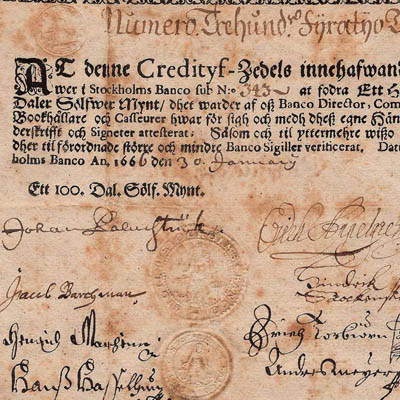 Numero Trehund:ro Fyratijo
AT denne Credityf-Zedels innehafwan
wer i Stockholms Banco sub N:o 343 at fodra Ett H
Daler Sölfwer Mynt/ dhet warder af oß Banco Director, Com
Bookhållare och Casseurer hwar för sigh och medh dheß egne Hän
derskrifft och Signeter attesterat: Såsom och til yttermehre wißo
dher til förordnade större och mindre Banco Sigiller verificerat. Dat
holms Banco An. 1666 den 30. January
Ett 100. Dal. Sölf. Mynt.
Johan Palmstruch
Jacob Barchman
Hindrik
Hanß
Erich Torbiörn
Anders Meyer